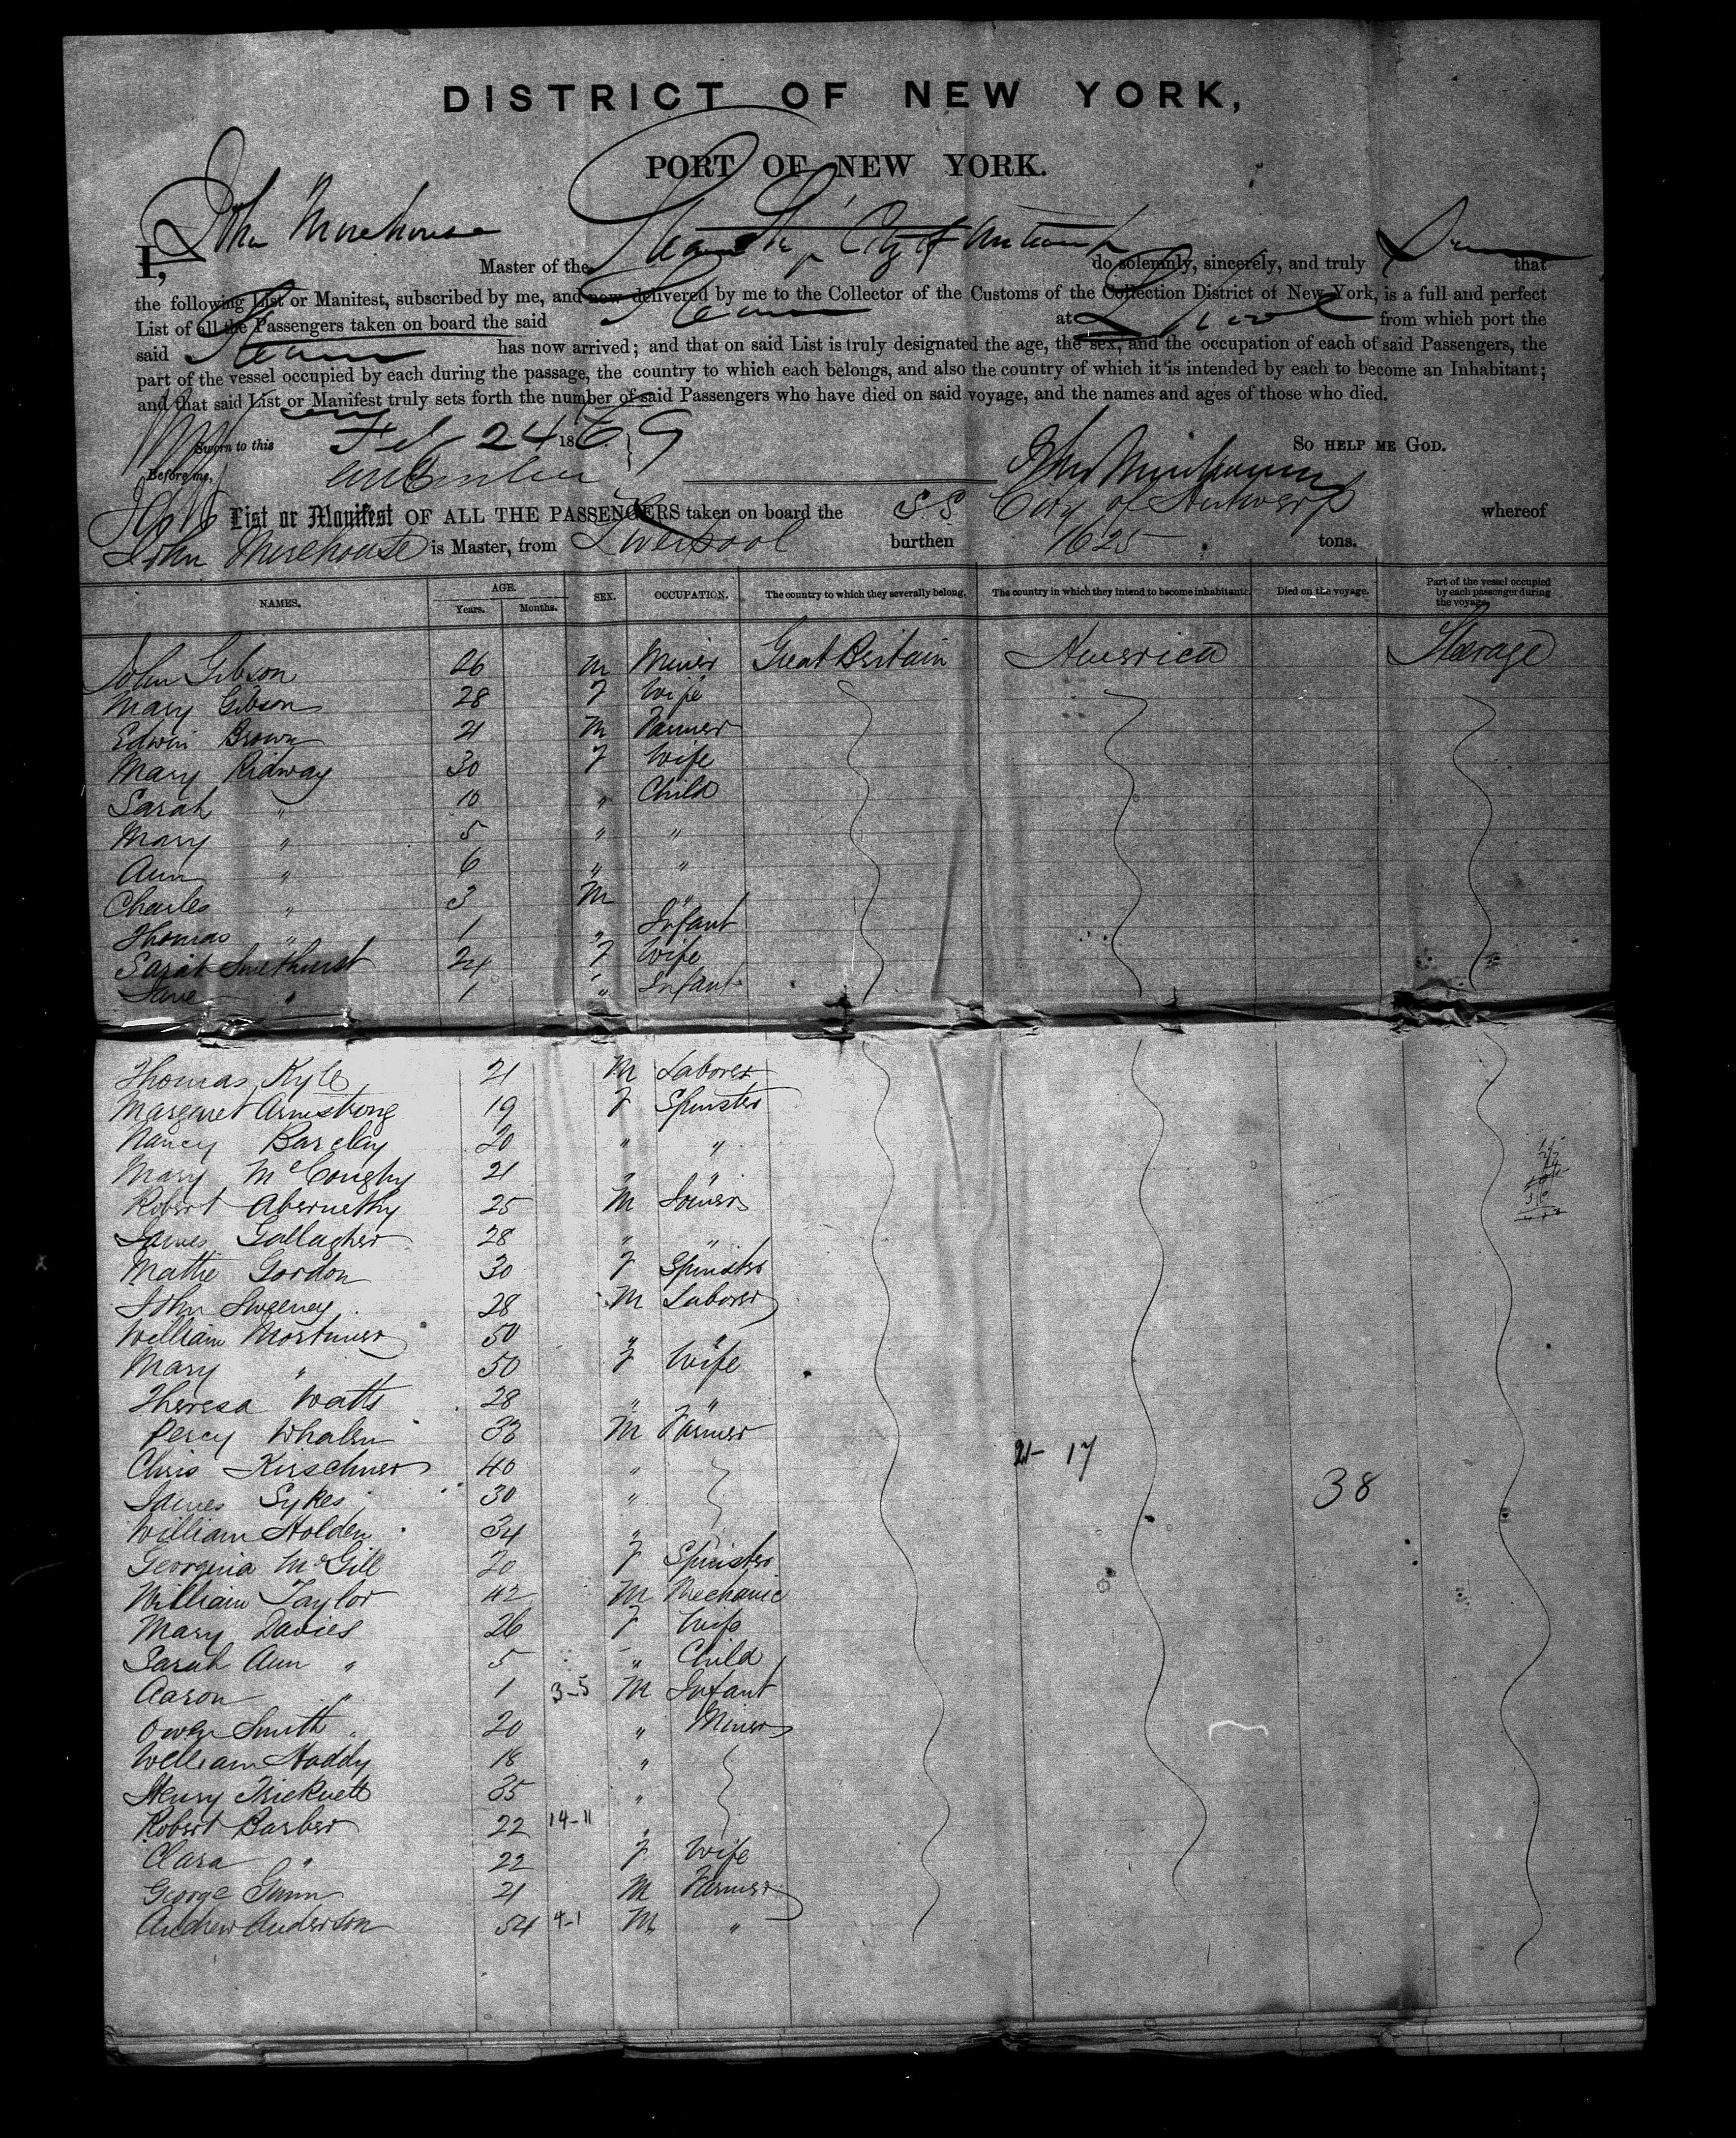 DISTRICT OF NEW YORK,
PORT OF NEW YORK.
I, John Mirehouse Master of the Steam Ship City of Antwerp do solemnly, sincerely, and truly Swear that
the following List or Manifest, subscribed by me, and now delivered by me to the Collector of the Customs of the Collection District of New York, is a full and perfect
List of all the Passengers taken on board the said Steamer at L'pool from which port the
said Steamer has now arrived; and that on said List is truly designated the age, the sex, and the occupation of each of said Passengers, the
part of the vessel occupied by each during the passage, the country to which each belongs, and also the country of which it is intended by each to become an Inhabitant;
and that said List or Manifest truly sets forth the number of said Passengers who have died on said voyage, and the names and ages of those who died.
Sworn to this Feby 24 1869 So HELP ME GOD.
Before me, Jno Mirehouse
List or Manifest OF ALL THE PASSENGERS taken on board the S.S. City of Antwerp whereof
John Mirehouse is Master, from Liverpool burthen 1625 tons.
NAMES. AGE. Years. Months. SEX. OCCUPATION. The country to which they severally belong. The country in which they intend to become inhabitants. Died on the voyage. Part of the vessel occupied by each passenger during the voyage.
John Gibson 26 M Miner Great Britain America Steerage
Mary Gibson 28 F Wife
Edwin Brown 21 M Farmer
Mary Ridway 30 F Wife
Sarah " 10 " Child
Mary " 5 " "
Ann " 6 " "
Charles " 3 M "
Thomas " 1 " Infant
Sarah Smethurst 24 F Wife
Jane " 1 " Infant
Thomas Kyle 21 M Laborer
Margaret Armstrong 19 F Spinster
Nancy Barclay 20 " "
Mary McConghy 21 " "
Robert Abernethy 25 M Joiner
James Gallagher 28 " "
Mattie Gordon 30 F Spinster
John Sweeney 28 M Laborer
William Mortimer 50 " "
Mary " 50 F Wife
Theresa Watts 28 " "
Percy Whalen 33 M Farmer
Chris Kirschner 40 " 21- 17
James Sykes 30 " 38
William Holden 34 "
Georgina McGill 20 F Spinster
William Taylor 42 M Mechanic
Mary Davies 26 F Wife
Sarah Ann " 5 " Child
Aaron " 1 3-5 M Infant
Owen Smith 20 " Miner
William Haddy 18 "
Henry Tricknett 35 "
Robert Barber 22 14-11 "
Clara " 22 F Wife
George Gunn 21 M Farmer
Andrew Anderson 54 4-1 M "